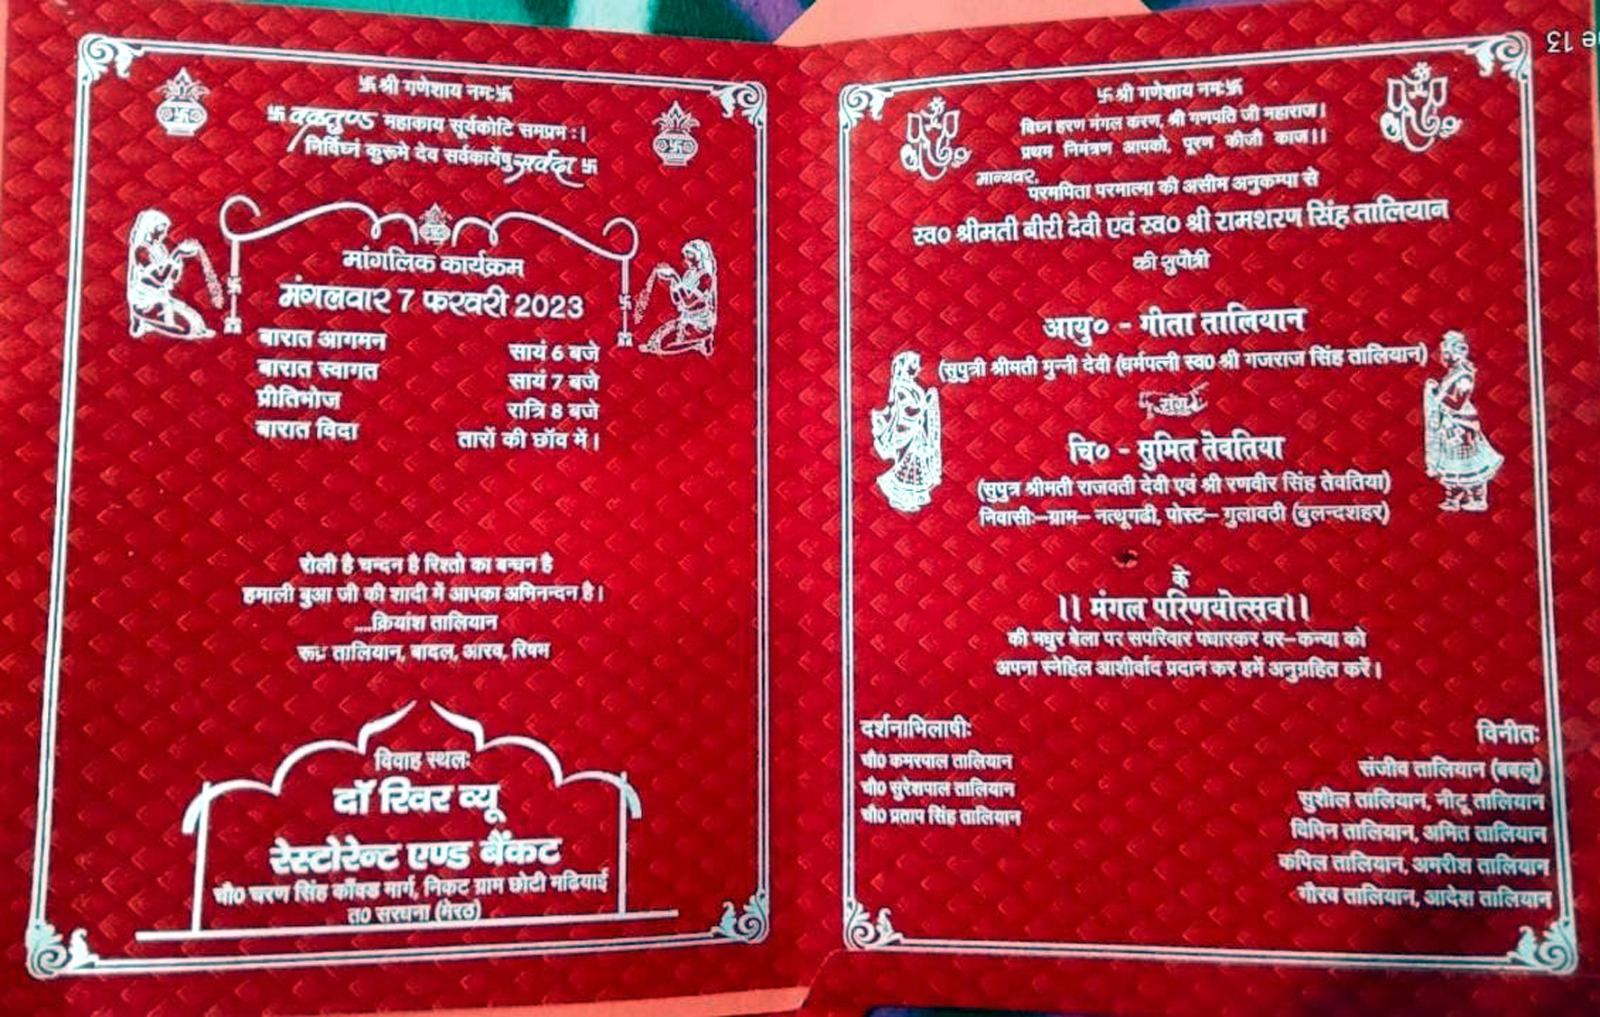 卐 श्री गणेशाय नमः 卐
卐 वक्रतुण्ड महाकाय सूर्यकोटि समप्रभः।
निर्विघ्नं कुरूमे देव सर्वकार्येषु सर्वदा 卐
मांगलिक कार्यक्रम
मंगलवार 7 फरवरी 2023
बारात आगमन सायं 6 बजे
बारात स्वागत सायं 7 बजे
प्रीतिभोज रात्रि 8 बजे
बारात विदा तारों की छॉव में।
रोली है चन्दन है रिश्तो का बन्धन है
हमाली बुआ जी की शादी में आपका अभिनन्दन है।
....क्रियांश तालियान
रूद्र तालियान, बादल, आरव, रिषभ
विवाह स्थलः
दॉ रिवर व्यू
रेस्टोरेन्ट एण्ड बैंकट
चौ0 चरण सिंह कॉवड मार्ग, निकट ग्राम छोटी मढियाई
त0 सरधना (मेरठ)
卐 श्री गणेशाय नमः 卐
विघ्न हरण मंगल करण, श्री गणपति जी महाराज।
प्रथम निमंत्रण आपको, पूरण कीजौ काज।।
मान्यवर,
परमपिता परमात्मा की असीम अनुकम्पा से
स्व0 श्रीमती बीरी देवी एवं स्व0 श्री रामशरण सिंह तालियान
की सुपौत्री
आयु0 - गीता तालियान
(सुपुत्री श्रीमती मुन्नी देवी (धर्मपत्नी स्व0 श्री गजराज सिंह तालियान)
संग
चि0 - सुमित तेवतिया
(सुपुत्र श्रीमती राजवती देवी एवं श्री रणवीर सिंह तेवतिया)
निवासीः-ग्राम- नत्थूगढी, पोस्ट- गुलावठी (बुलन्दशहर)
के
।। मंगल परिणयोत्सव।।
की मधुर बेला पर सपरिवार पधारकर वर-कन्या को
अपना स्नेहिल आशीर्वाद प्रदान कर हमें अनुग्रहित करें।
दर्शनाभिलाषीः
चौ0 कमरपाल तालियान
चौ0 सुरेशपाल तालियान
चौ0 प्रताप सिंह तालियान
विनीतः
संजीव तालियान (बबलू)
सुशील तालियान, नीटू तालियान
विपिन तालियान, अमित तालियान
कपिल तालियान, अमरीश तालियान
गौरव तालियान, आदेश तालियान